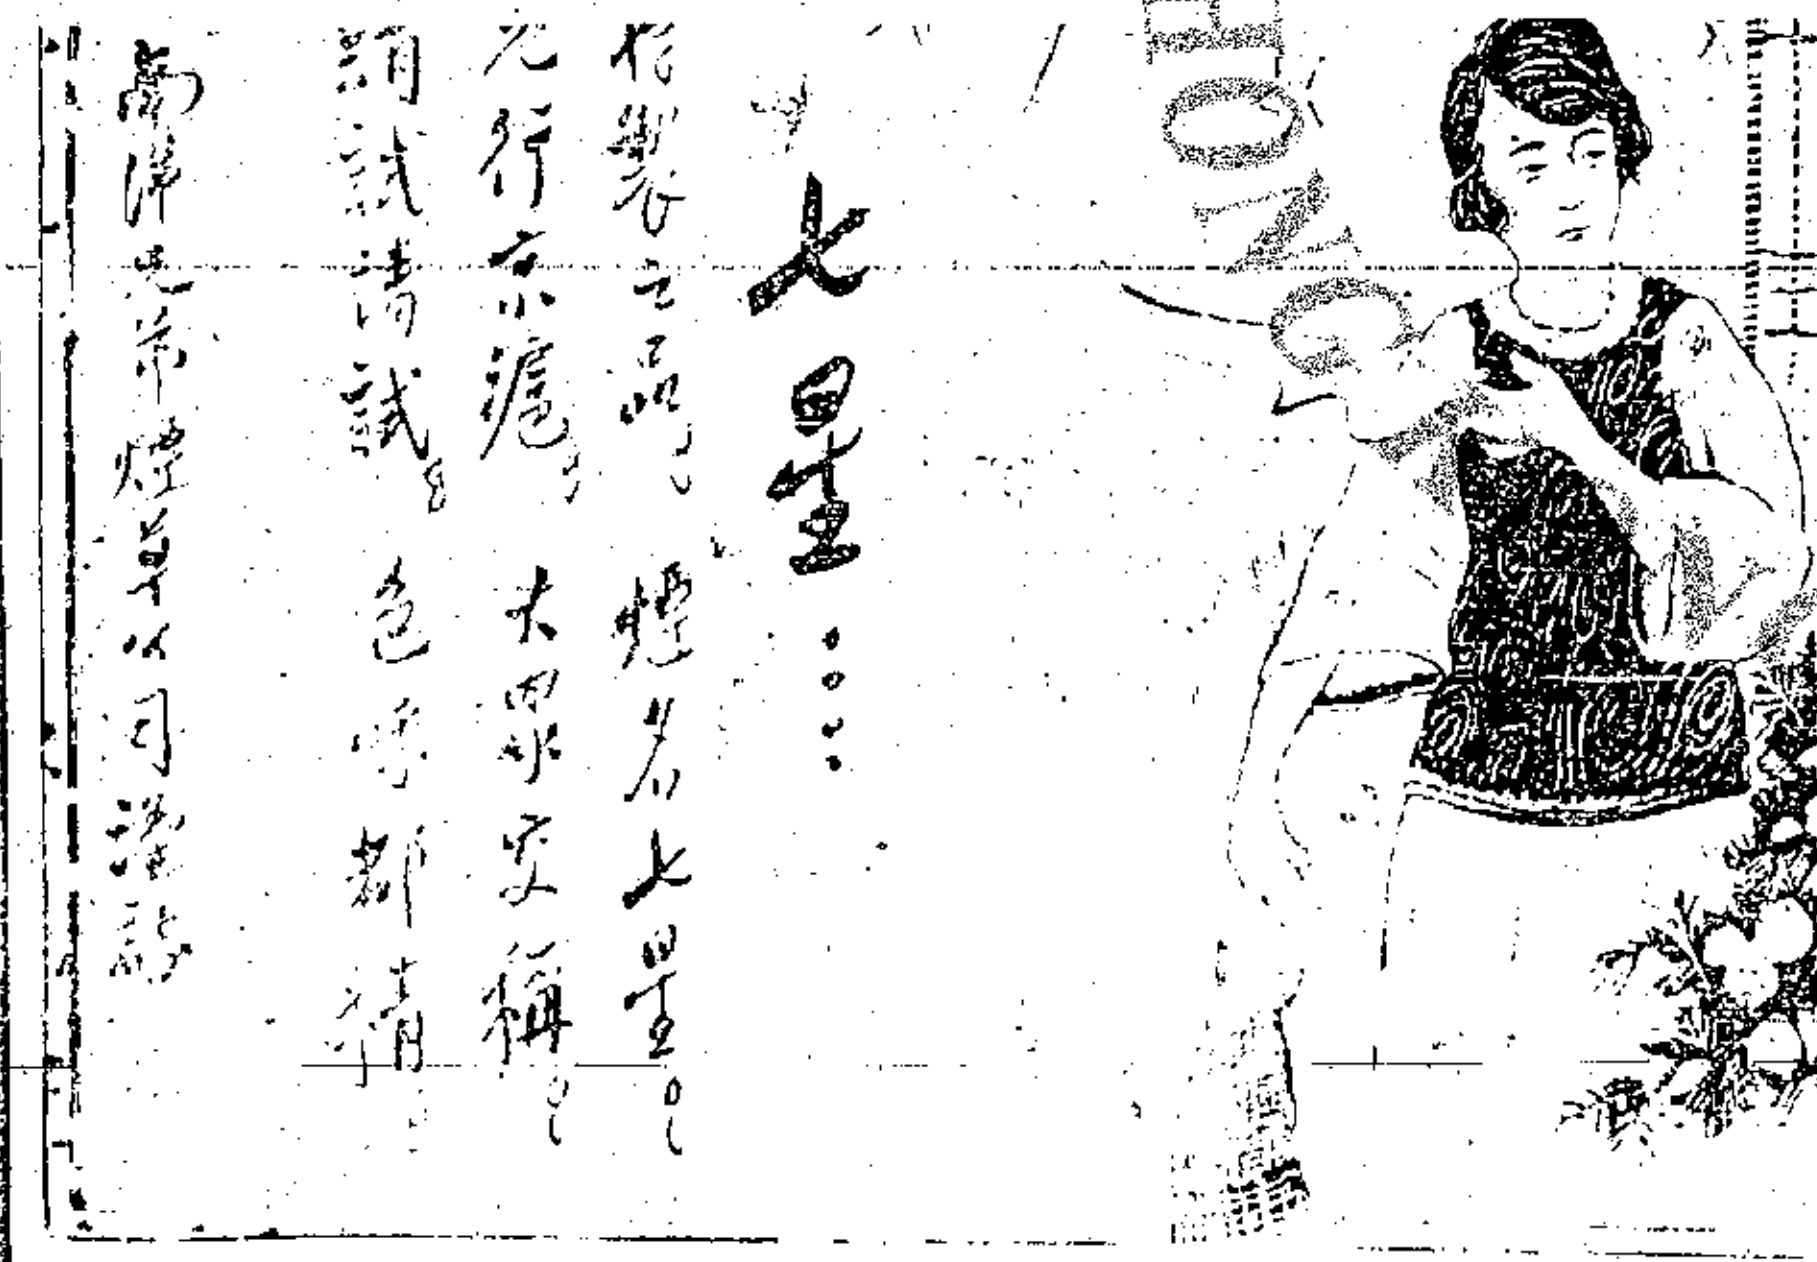 七星....
特製之品，煙名七星。
先行京滬，大眾交稱。
請試請試。色味都精。
南洋兄弟煙草公司謹啟